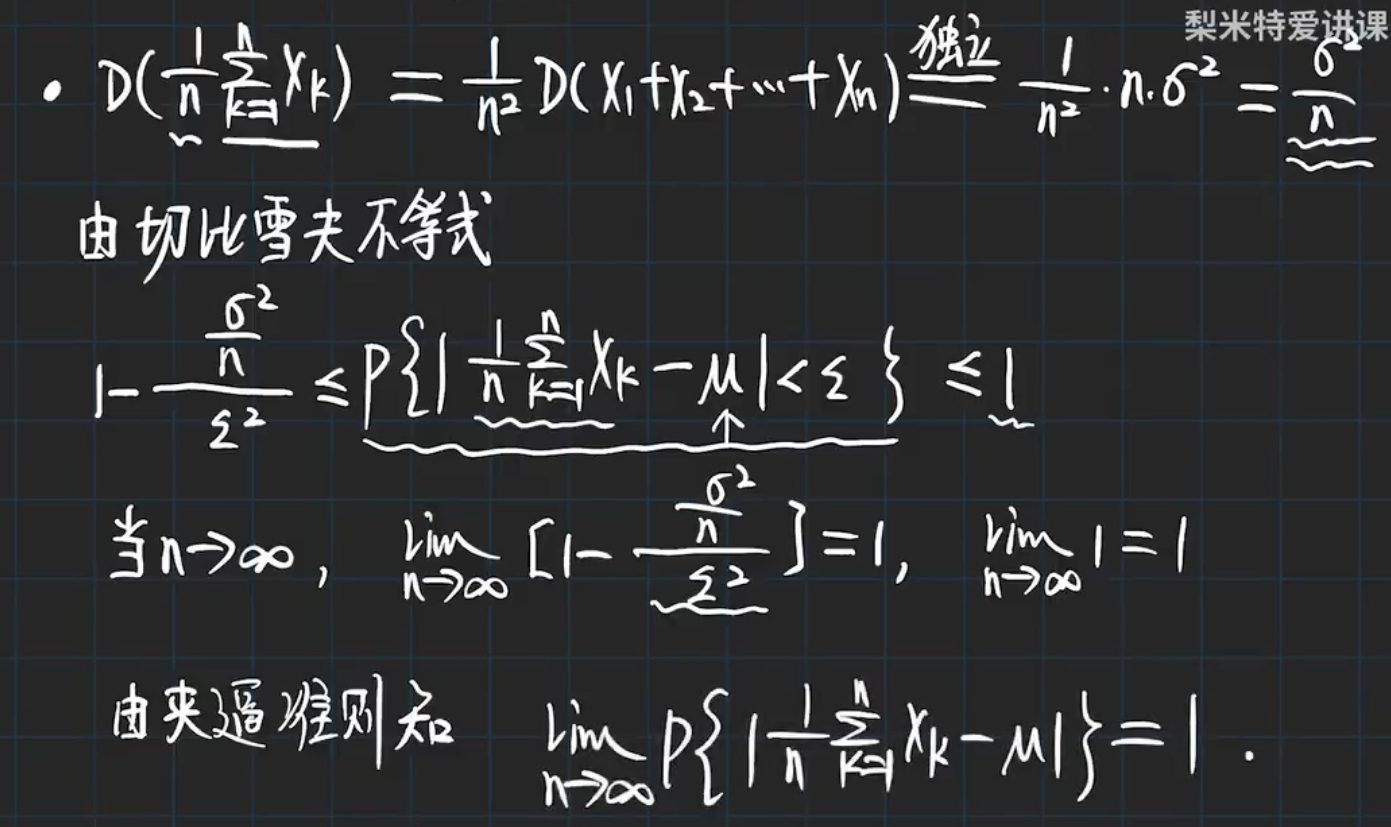 梨米特爱讲课
• D(1/n ∑_{k=1}^{n} X_k) = 1/n² D(X₁+X₂+⋯+X_n) 独立= 1/n²·n·σ² = σ²/n
由切比雪夫不等式
1 − (σ²/n)/ε² ≤ P{|1/n ∑_{k=1}^{n} X_k − μ| < ε} ≤ 1
当n→∞, lim_{n→∞} [1 − (σ²/n)/ε²] = 1, lim_{n→∞} 1 = 1
由夹逼准则知 lim_{n→∞} P{|1/n ∑_{k=1}^{n} X_k − μ|} = 1 .